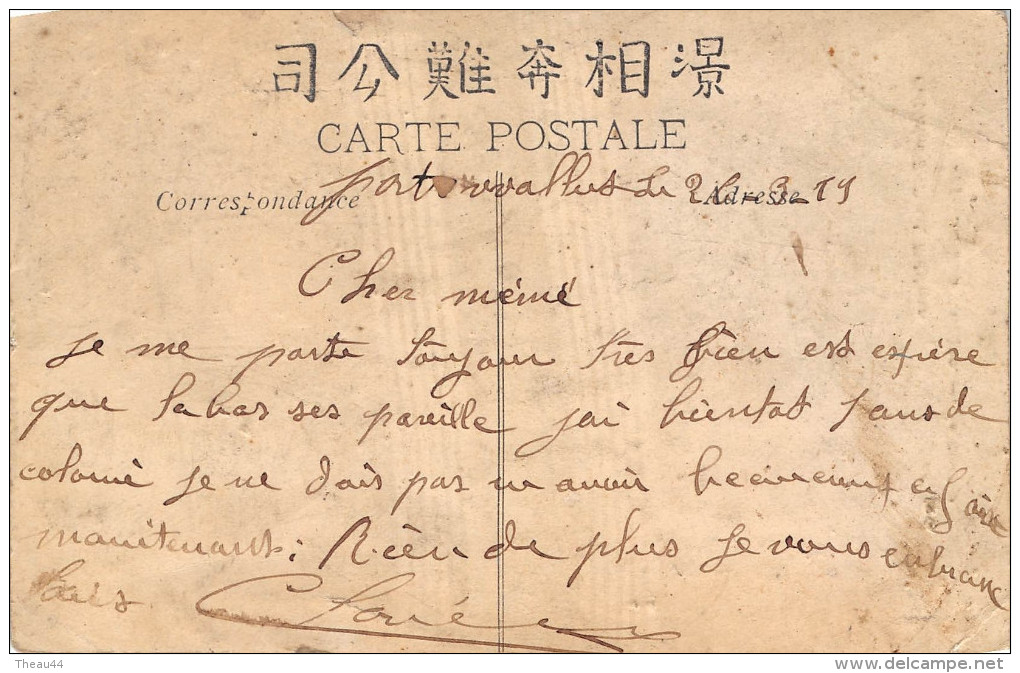 司公難奔相濕
CARTE POSTALE
Correspondance
Adresse
port wallut le 26-3-19
Cher mémé
Je me porte toujour très bien est espère
que labas ses pareille jai bientot 1 ans de
colonie je ne dois pas en avoir beaucoup en faire
maintenant; Rien de plus je vous embrasse
Louis
Theau44
www.delcampe.net